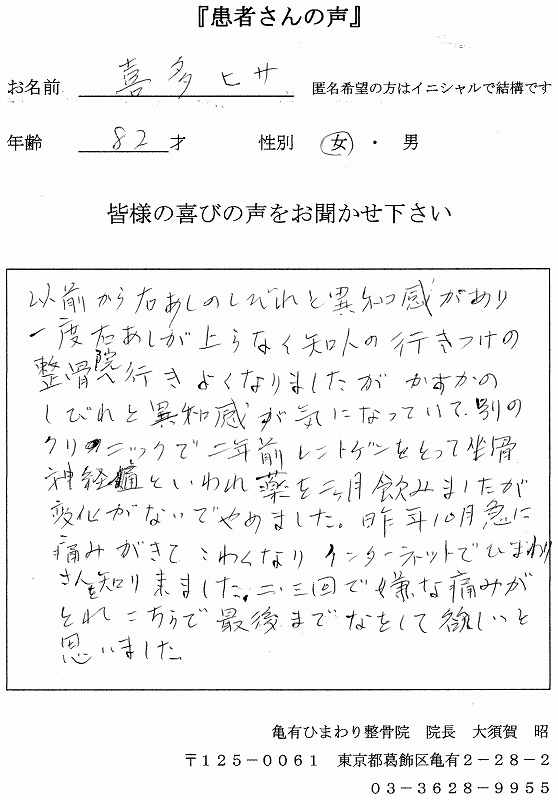 『患者さんの声』
お名前 喜多ヒサ 匿名希望の方はイニシャルで結構です
年齢 82才 性別 女・男
皆様の喜びの声をお聞かせ下さい
以前から右あしのしびれと異知感があり
一度右あしが上らなく知人の行きつけの
整骨院へ行きよくなりましたが かすかの
しびれと異知感が気になっていて、別の
クリニックで二年前レントゲンをとって坐骨
神経痛といわれ薬を二ヶ月飲みましたが
変化がないでやめました。昨年10月急に
痛みがきてこわくなりインターネットでひまわり
さんを知り来ました。二、三回で嫌な痛みが
とれこちらで最後までなをして欲しいと
思いました
亀有ひまわり整骨院 院長 大須賀 昭
〒125-0061 東京都葛飾区亀有2-28-2
03-3628-9955